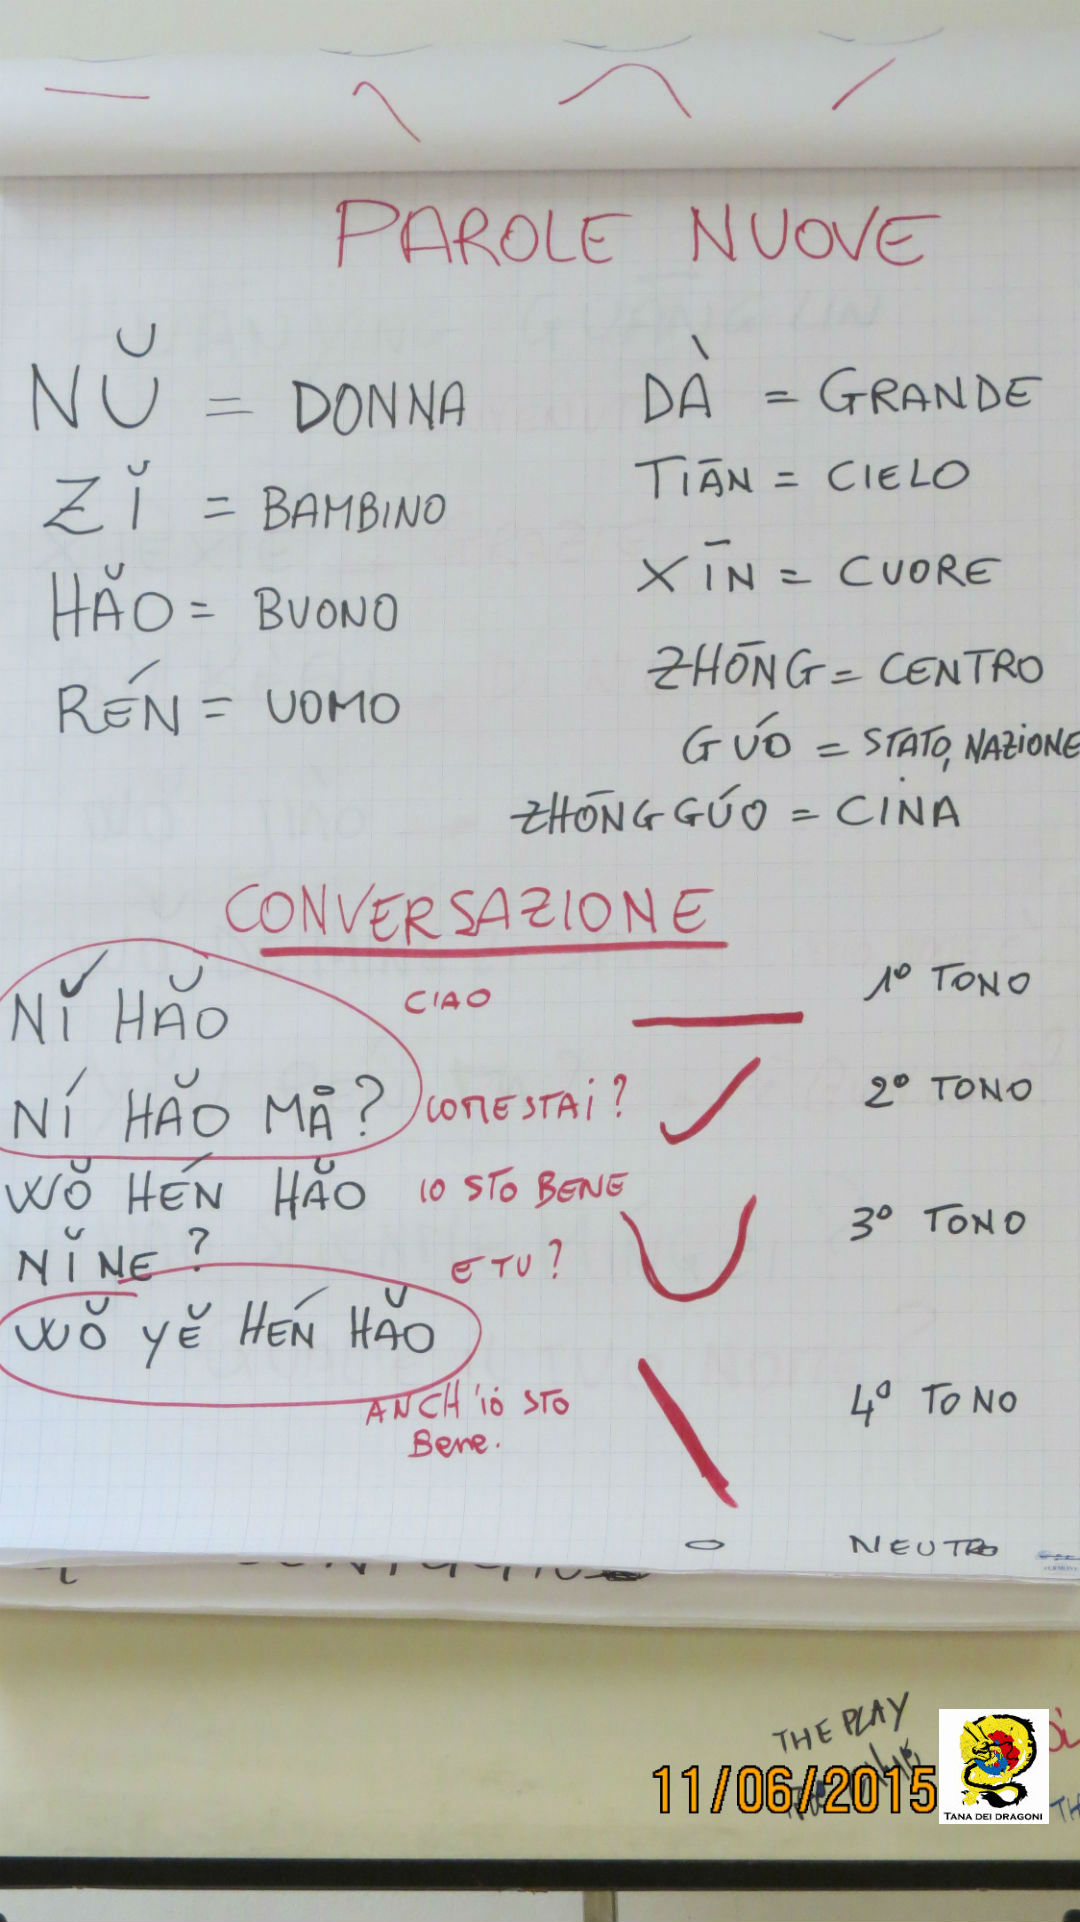 PAROLE NUOVE
NŬ = DONNA
ZĬ = BAMBINO
HĂO = BUONO
RÉN = UOMO
DÀ = GRANDE
TIĀN = CIELO
XĪN = CUORE
ZHŌNG = CENTRO
GÚO = STATO, NAZIONE
ZHŌNGGÚO = CINA
CONVERSAZIONE
NĬ HĂO CIAO
NÍ HĂO MÅ? COME STAI?
WŎ HÉN HĂO IO STO BENE
NĬ NE? E TU?
WŎ YĔ HÉN HĂO
ANCH'IO STO
Bene.
1º TONO
2º TONO
3º TONO
4º TONO
NEUTRO
THE PLAY
11/06/2015
TANA DEI DRAGONI